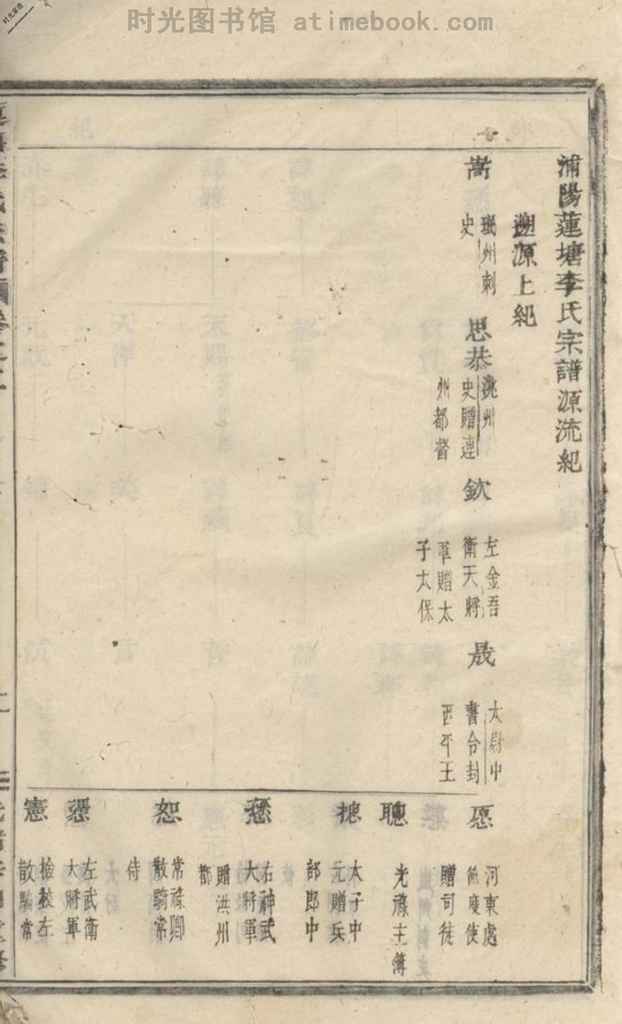 时光图书馆 atimebook.com
浦陽蓮塘李氏宗譜源流紀
遡源上紀
嵩
州刺
史
思恭
洮州
史贈連
州都督
欽
左金吾
衛大將
軍贈太
子太保
晟
太尉中
書令封
西平王
愿
河東處
使
贈司徒
聰
光祿主簿
摠
太子中
元贈兵
部郎中
愻
右神武
大將軍
贈洪州
都
恕
常祿卿
散騎常
侍
憑
左武衛
大將軍
憲
檢校左
散騎常